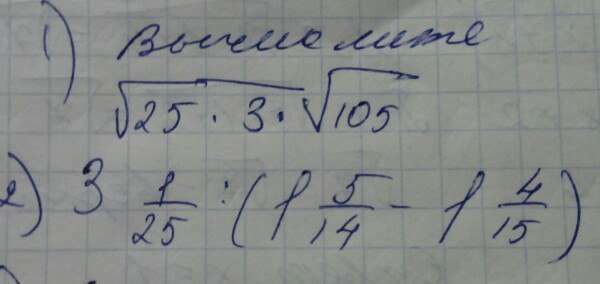 1) Вычислите
√25 · 3 · √105
2) 3 1/25 : (1 5/14 - 1 4/15)